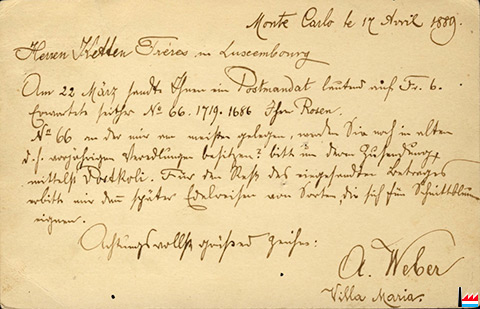 Monte Carlo le 17 Avril 1889.
Herren Ketten Frères in Luxembourg
Am 22 März sandte Ihnen ein Postmandat lautend auf Fr. 6.
Erwartete seither No 66. 1719. 1686 Ihr Rosen.
No 66 an der mir am meisten gelegen, werden Sie noch in alten
d. h. vorjährigen Veredlungen besitzen? bitte um deren Zusendung
mittelst Postkoli. Für den Rest des eingesandten Betrages
erbitte mir dann später Edelreiser von Sorten, die sich für Schnittblumen
eignen.
Achtungsvollst grüßend zeichne:
A. Weber
Villa Maria.